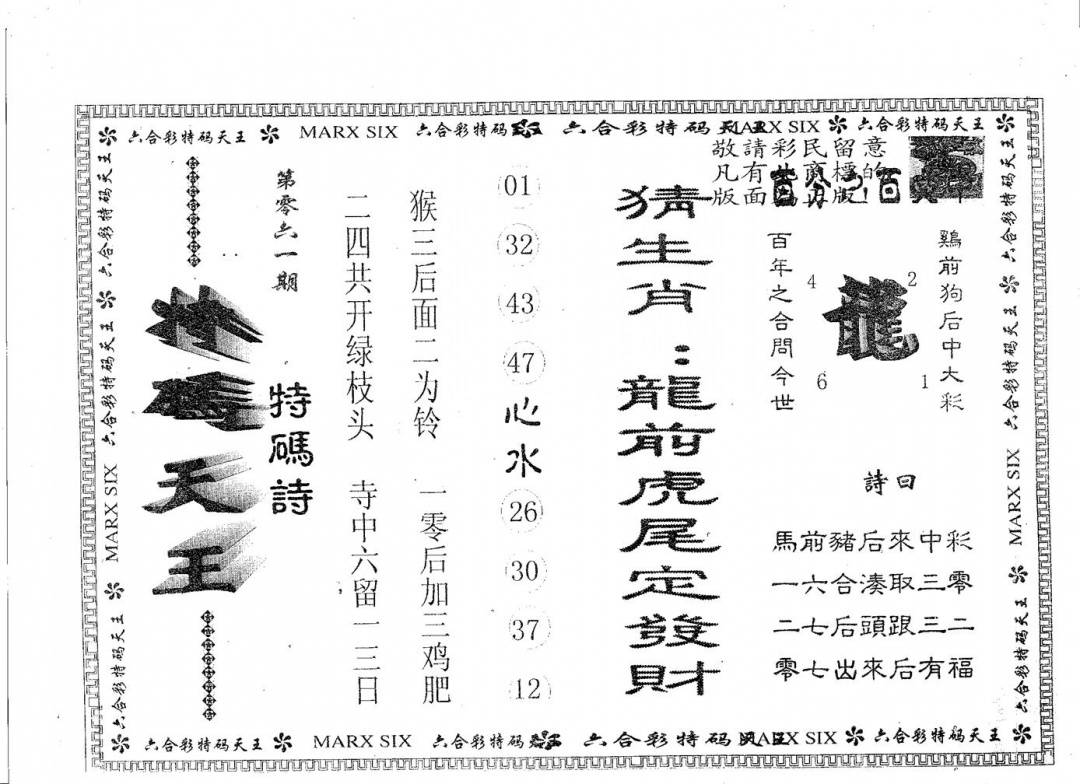 六合彩特码天王 MARX SIX 六合彩特码 六合彩特码天王 MARX SIX 六合彩特码天王
敬請彩民留意
凡有
版面
第零六一期
特碼天王
特碼詩
猴三后面二为铃 一零后加三鸡肥
二四共开绿枝头 寺中六留一三日
01
32
43
47
心水
26
30
37
12
猜生肖：龍前虎尾定發財
鷄前狗后中大彩
百年之合問今世
龍
4
2
6
1
詩曰
馬前豬后來中彩
一六合湊取三零
二七后頭跟三二
零七出來后有福
六合彩特码天王
六合彩特码天王
六合彩特码天王
MARX SIX
六合彩特码天王
六合彩特码天王
六合彩特码天王
六合彩特码天王
MARX SIX
六合彩特码天王
六合彩特码天王 MARX SIX 六合彩特码 六合彩特码 MARX SIX 六合彩特码天王